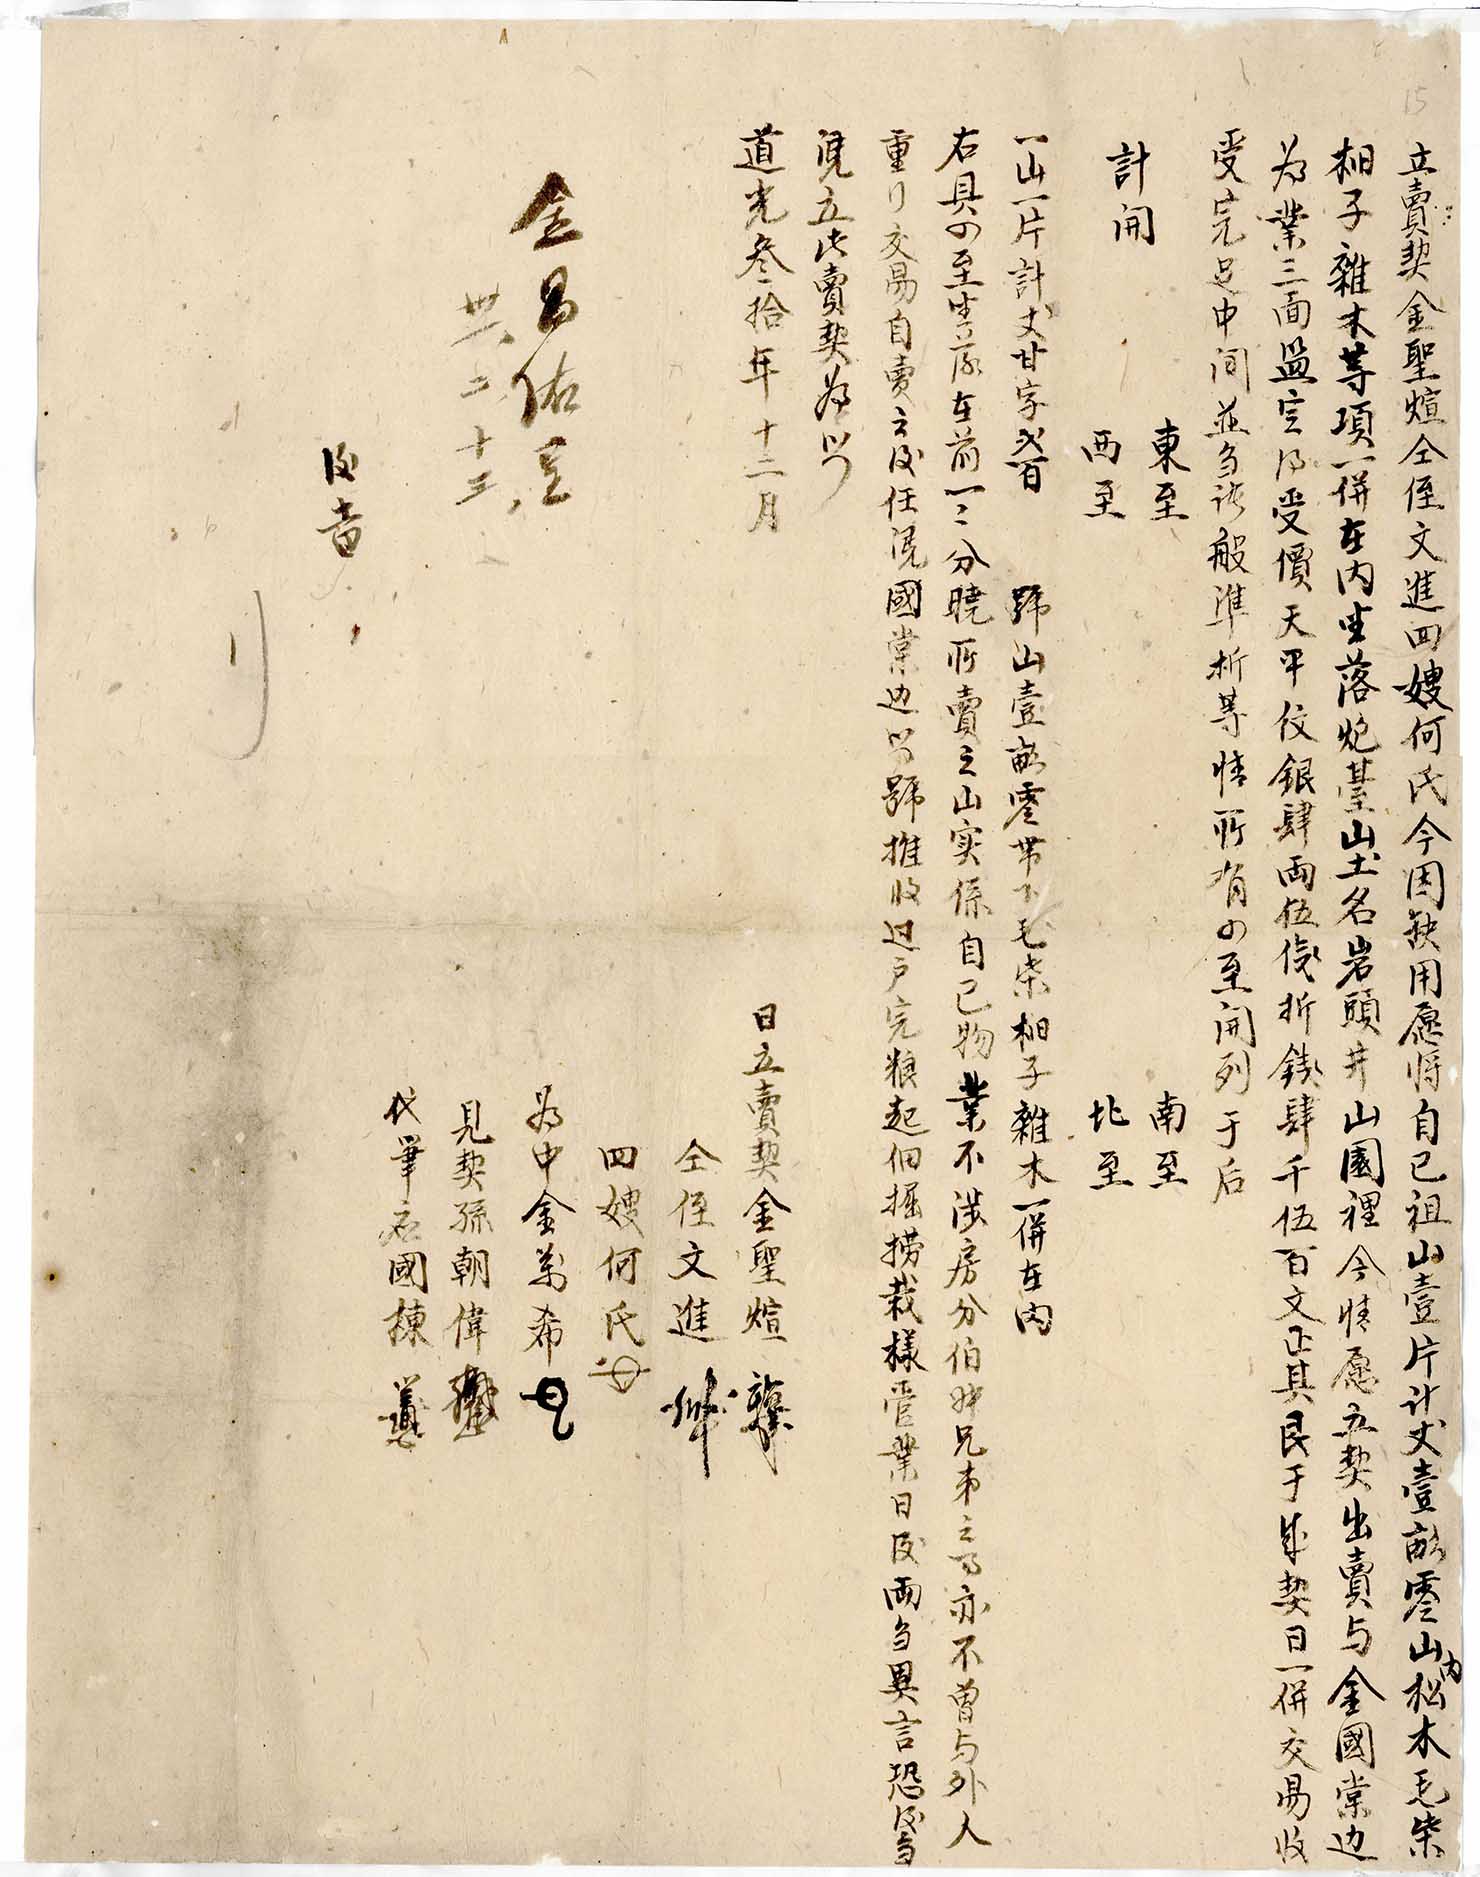 立賣契金聖煊仝侄文進四嫂何氏今因缺用愿将自己祖山壹片计丈壹畝零山内松木毛柴
桕子雜木等項一併在内坐落炮臺山土名岩頭井山園裡今情愿立契出賣与金國棠边
为業三面盈定得受價天平伩銀肆両伍伐折錢肆千伍百文正其艮于成契日一併交易收
受完足中间並无諸般準折等情所有四至開列于后
計開
東至
西至
南至
北至
一山一片計丈廿字弍百 號山壹畝零带下毛柴桕子雜木一併在内
右具四至坐落在前一二分曉所賣之山实係自已物業不涉房分伯叔兄弟之事亦不曾与外人
重行交易自賣之後任凭國棠边照號推收过户完粮起佃掘撈栽樣管業日後両无異言恐後无
凭立此賣契为照
道光叁拾年十二月 日立賣契金聖煊
仝侄文進
四嫂何氏
为中金萬希
見契孫朝偉
代筆石國棟
金昌佑
卅六 二 十三